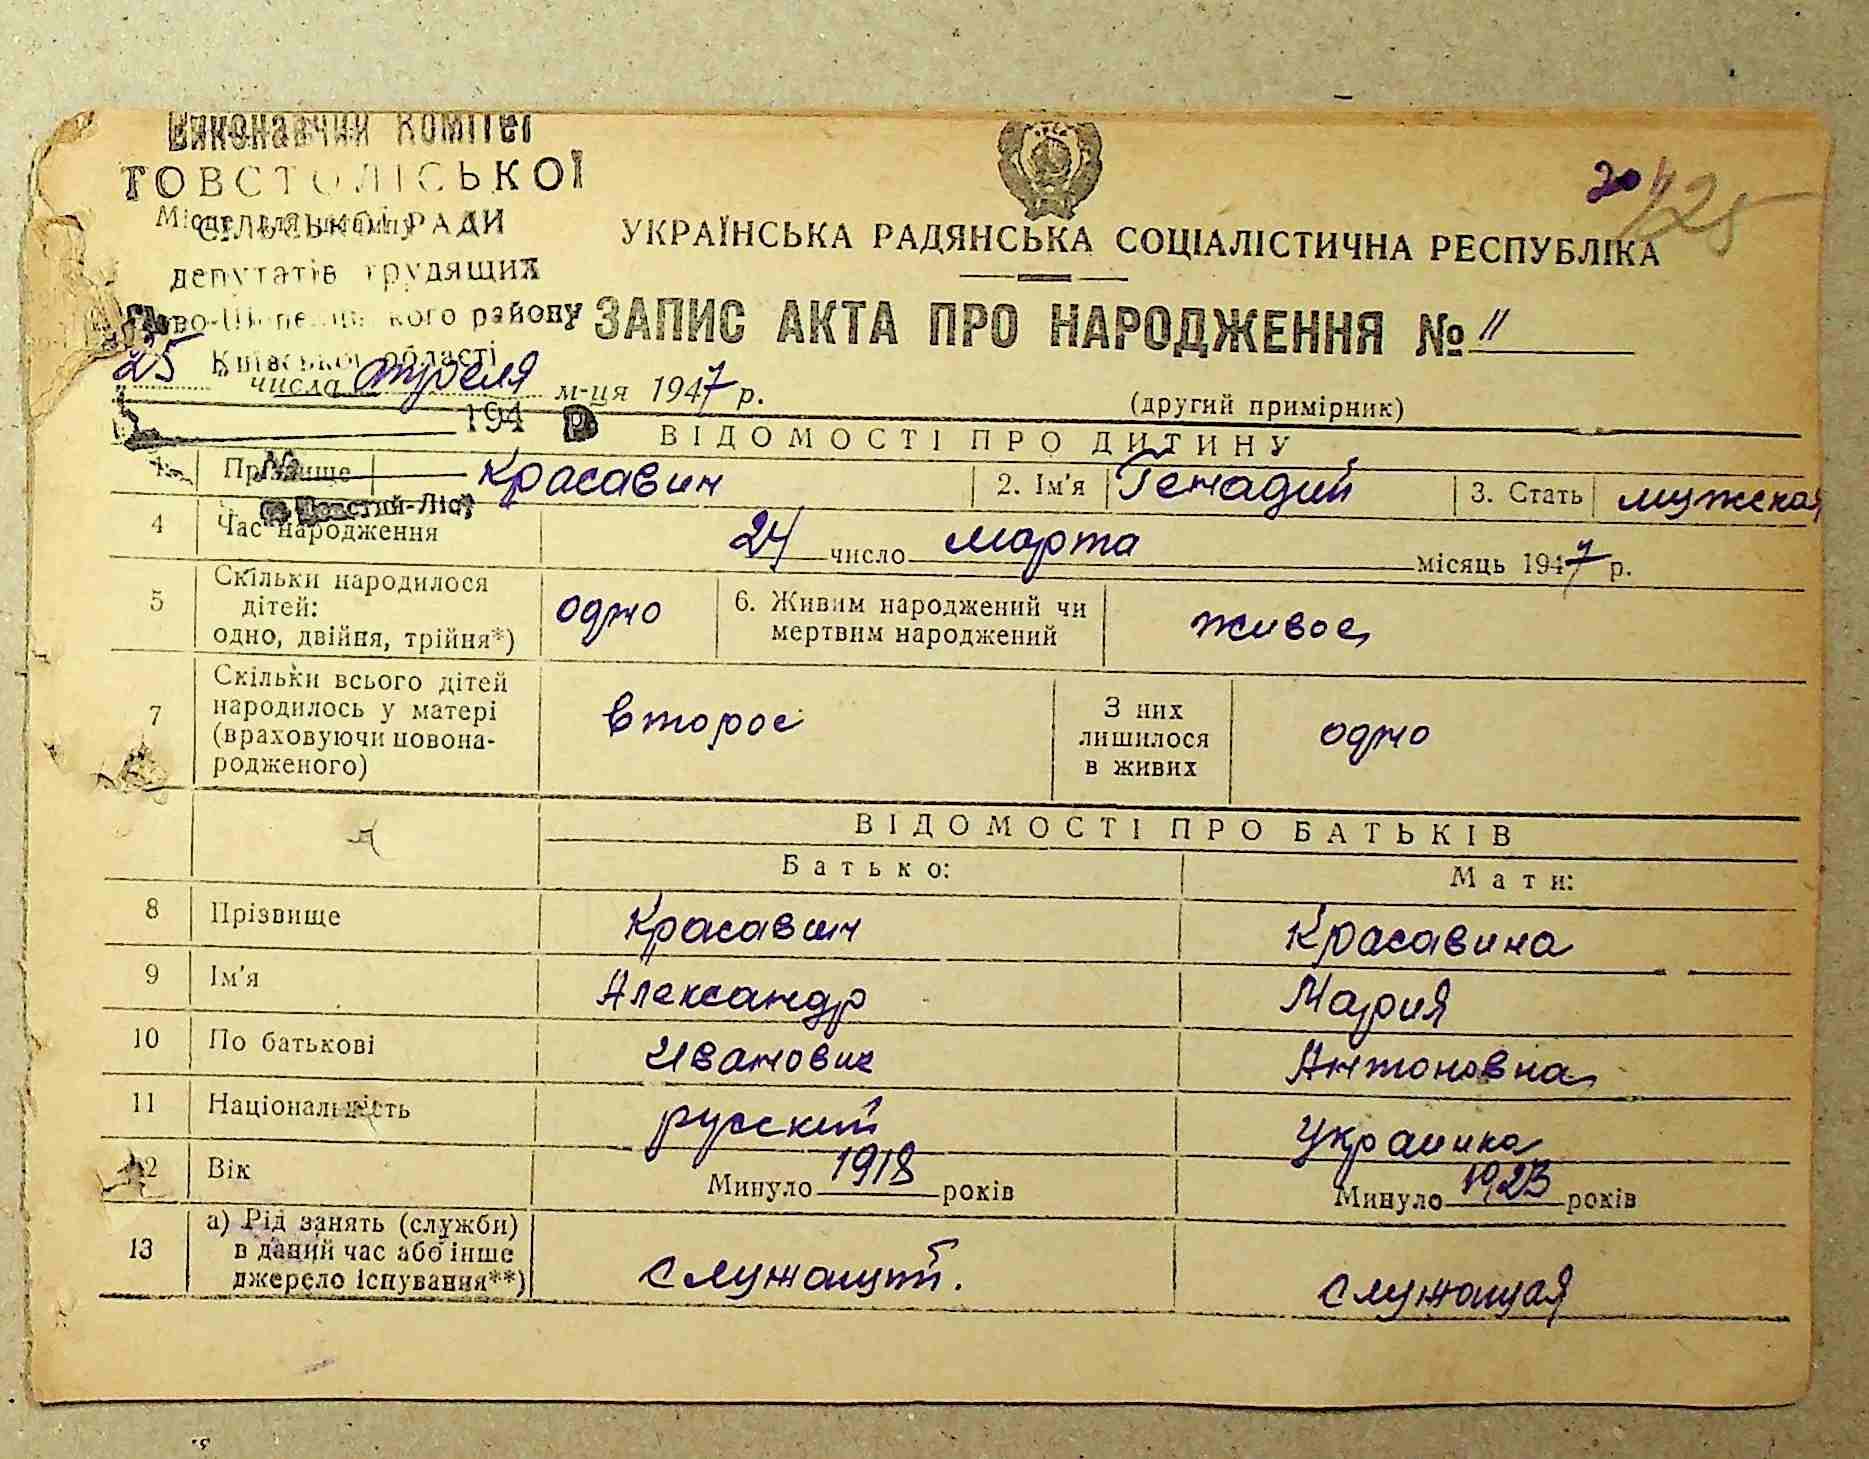 Виконавчий Комітет
ТОВСТОЛІСЬКОЇ
СІЛЬСЬКОЇ РАДИ
депутатів трудящих
кого району
Київської області
194 р.
20
125
УКРАЇНСЬКА РАДЯНСЬКА СОЦІАЛІСТИЧНА РЕСПУБЛІКА
ЗАПИС АКТА ПРО НАРОДЖЕННЯ № 11
25 числа апреля м-ця 1947 р.
(другий примірник)
ВІДОМОСТІ ПРО ДИТИНУ
1. Прізвище Красавин 2. Ім'я Генадий 3. Стать мужская
Товстий-Ліс
4 Час народження 24 число марта місяць 1947 р.
5 Скільки народилося дітей: одно, двійня, трійня*) одно 6. Живим народжений чи мертвим народжений живое
7 Скільки всього дітей народилось у матері (враховуючи новонародженого) второе З них лишилося в живих одно
ВІДОМОСТІ ПРО БАТЬКІВ
Батько: Мати:
8 Прізвище Красавин Красавина
9 Ім'я Александр Мария
10 По батькові Иванович Антоновна
11 Національність русский украинка
12 Вік Минуло 1918 років Минуло 1923 років
13 а) Рід занять (служби) в даний час або інше джерело існування**) служащий. служащая